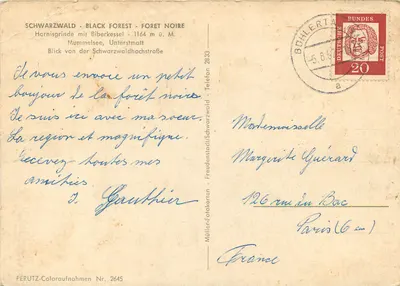 SCHWARZWALD - BLACK FOREST - FORET NOIRE
Hornisgrinde mit Biberkessel - 1164 m ü. M.
Mummelsee, Unterstmatt
Blick von der Schwarzwaldhochstraße
Je vous envoie un petit
bonjour de la forêt noire
Je suis ici avec ma soeur,
La région et magnifique.
Recevez toutes mes
amitiés
J. Gauthier
PERUTZ-Coloraufnahmen Nr. 2645
Freudenstadt/Schwarzwald - Telefon 2833
BÜHLERTAL
a
DEUTSCHE BUNDESPOST
20
Mademoiselle
Marguerite Guérard
126 rue du Bac
Paris (6e)
France